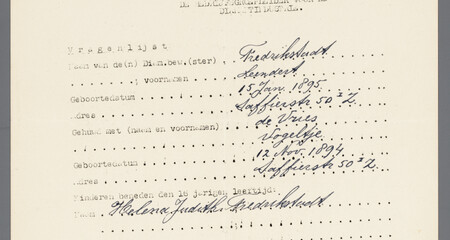 Vragenlijst
Naam van de(n) Diam.bew.(ster) Fredrikstadt
voornamen Leendert
Geboortedatum 15 Jan. 1895
Adres Saffierstr 50 I Z.
Gehuwd met (naam en voornamen) de Vries
Vogeltje
Geboortedatum 12 Nov. 1894
Adres Saffierstr 50 I Z.
Kinderen beneden den 16 jarigen leeftijd:
Naam Helena Judith Fredrikstadt